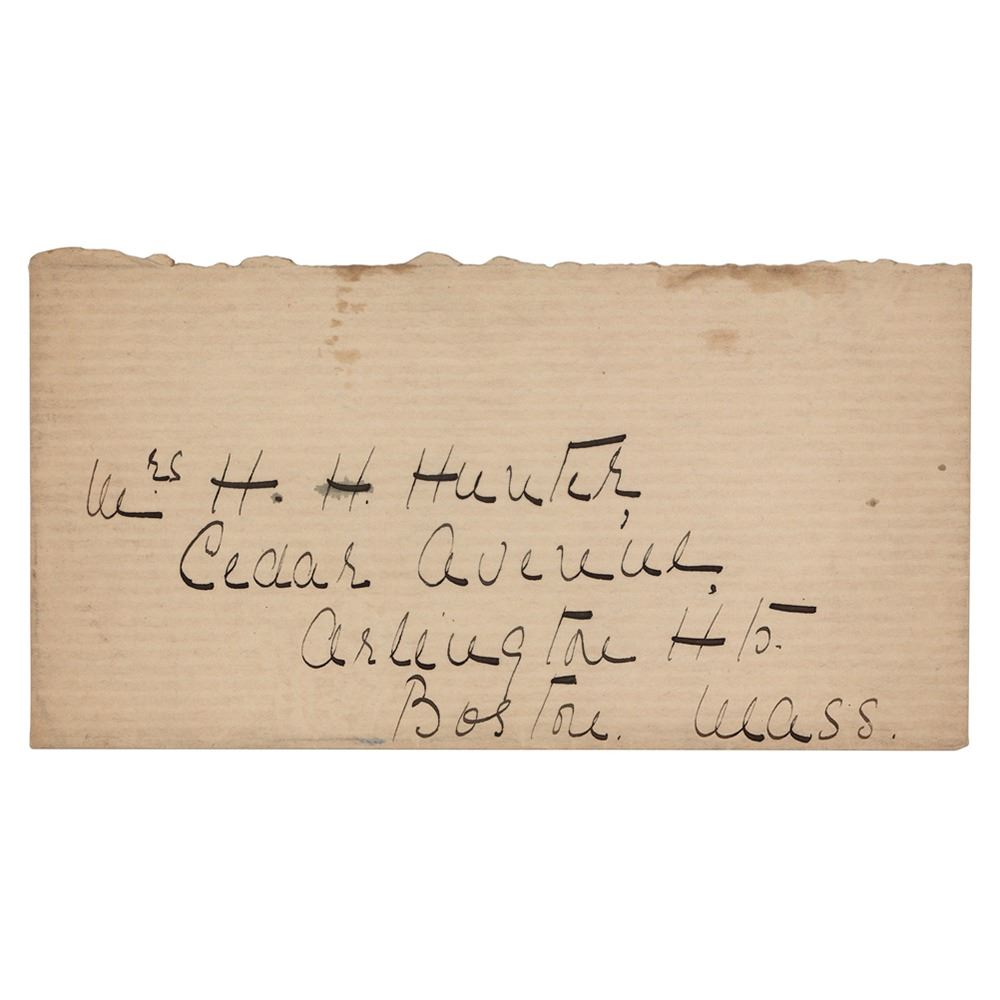 Mrs H. H. Hunter,
Cedar Avenue,
Arlington Hts.
Boston. Mass.